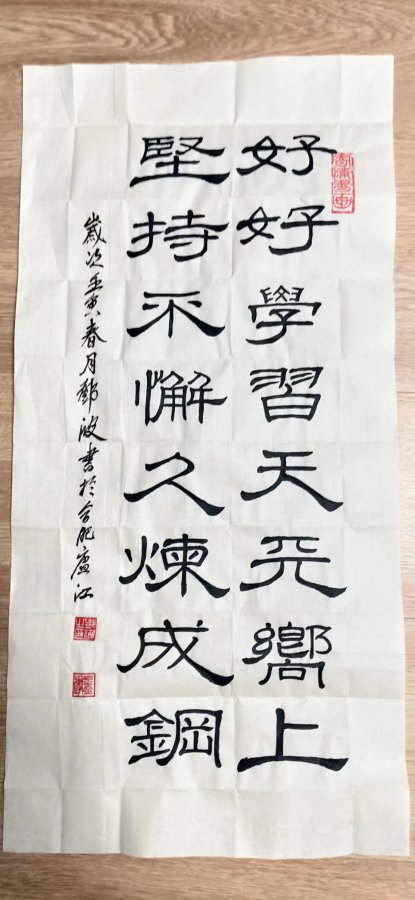 好好學習天天嚮上
堅持不懈久煉成鋼
歲次壬寅春月波書於合肥廬江